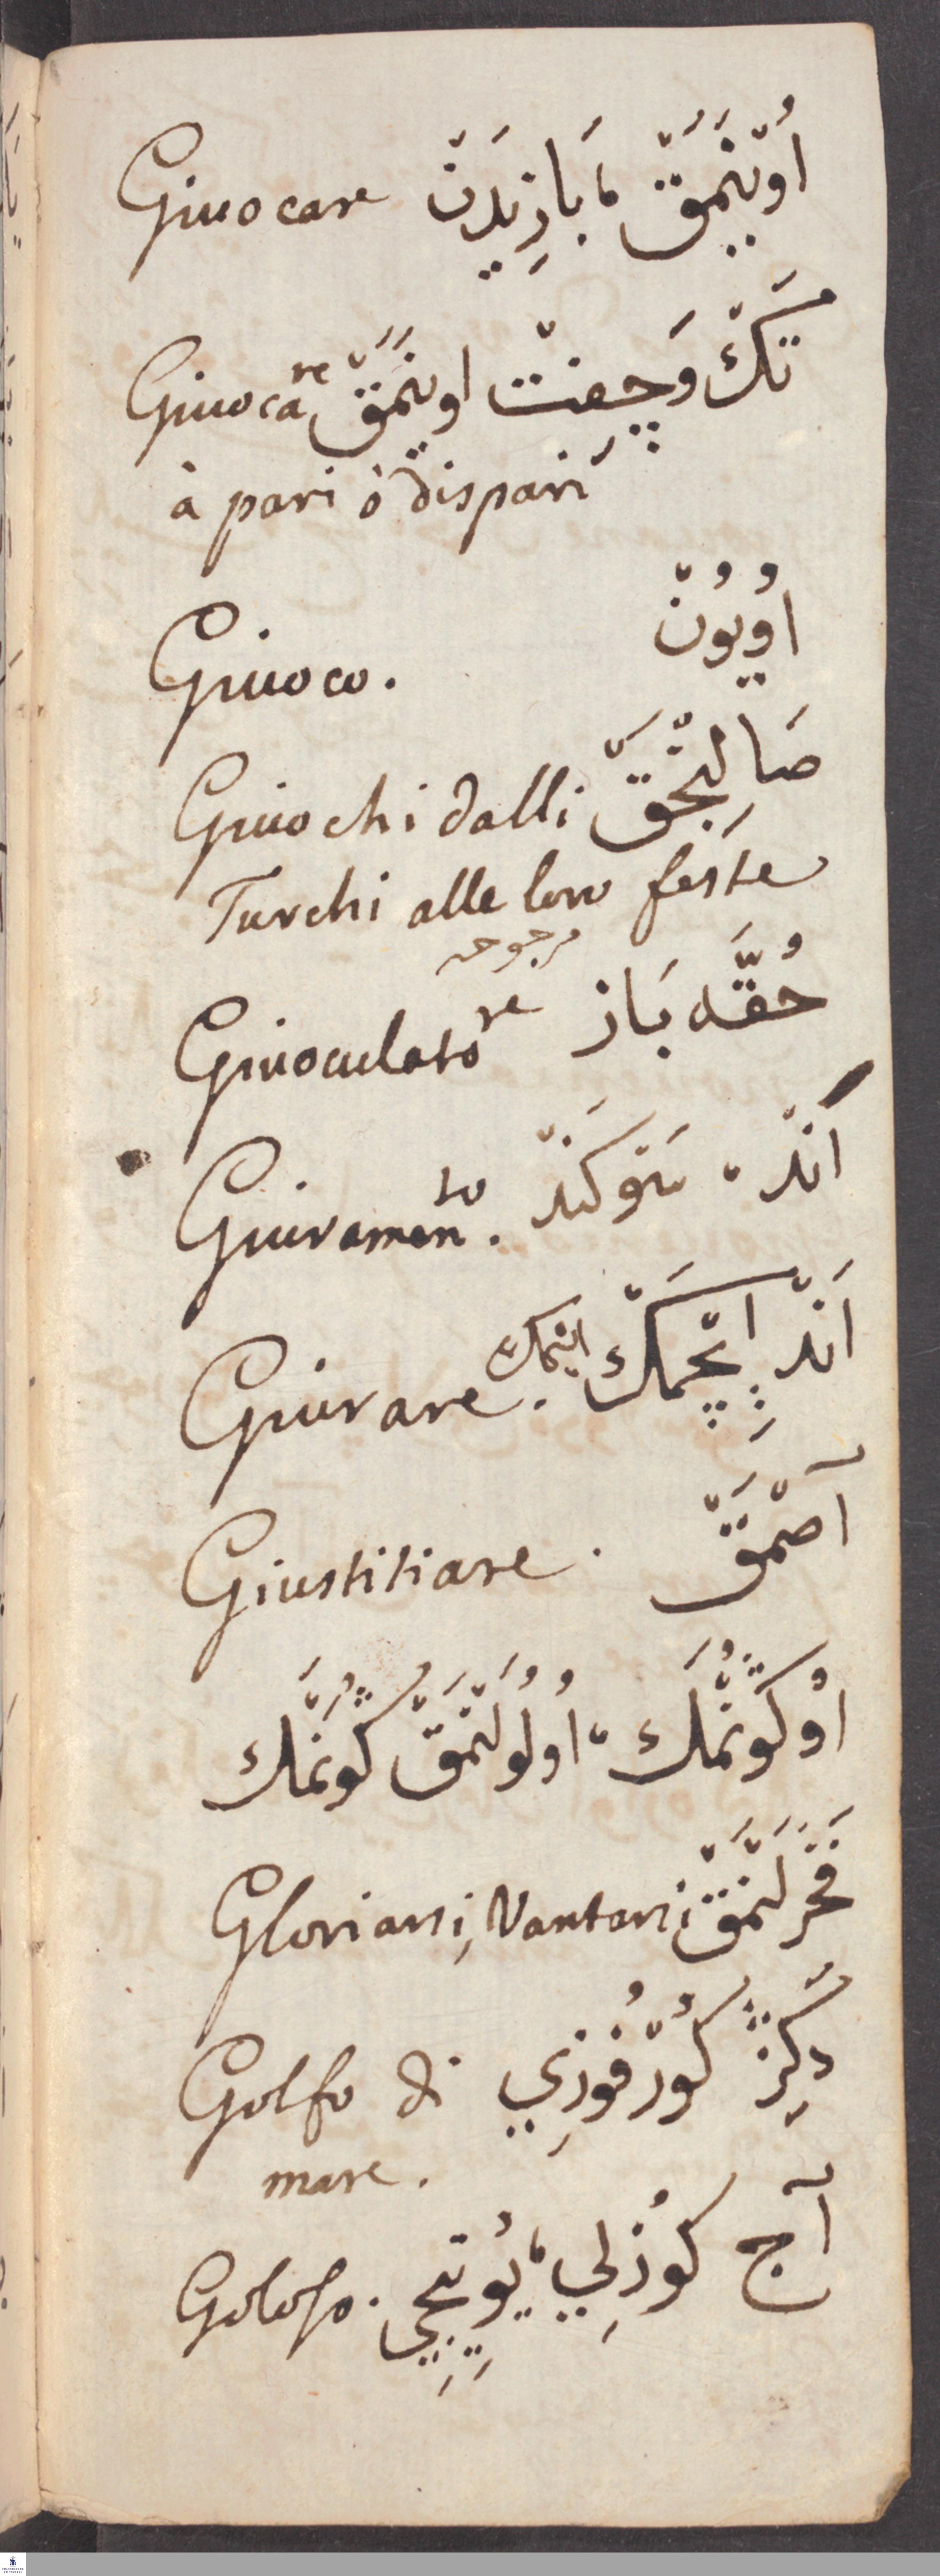 Giuocare اُوْيْنَمَقْ ، بَازِيْدَنْ
Giuocare تَكْ وَچِفْتْ اوينَمَقْ
à pari ò dispari
Giuoco. اُويُونْ
Giuochi dalli صَاِلِنْجَقْ
Turchi alle loro feste
مرجوحه
Giuoculatore حُقَّه بَاز
Giuramento. اَنْدْ ، سَوكَنْدْ
Giurare. اَنْدْ اِچْمَكْ ايتمك
Giustitiare. آصْمَقْ
اُوكُونْمَك ، اُولُولَنْمَقْ كُونَنْمَك
Gloriarsi, Vantarsi فَخَرْلَنْمَقْ
Golfo di دَكِزْ كُورْفُوزِي
mare.
Goloso. آج كُوزلِي ، يُويِيجِي